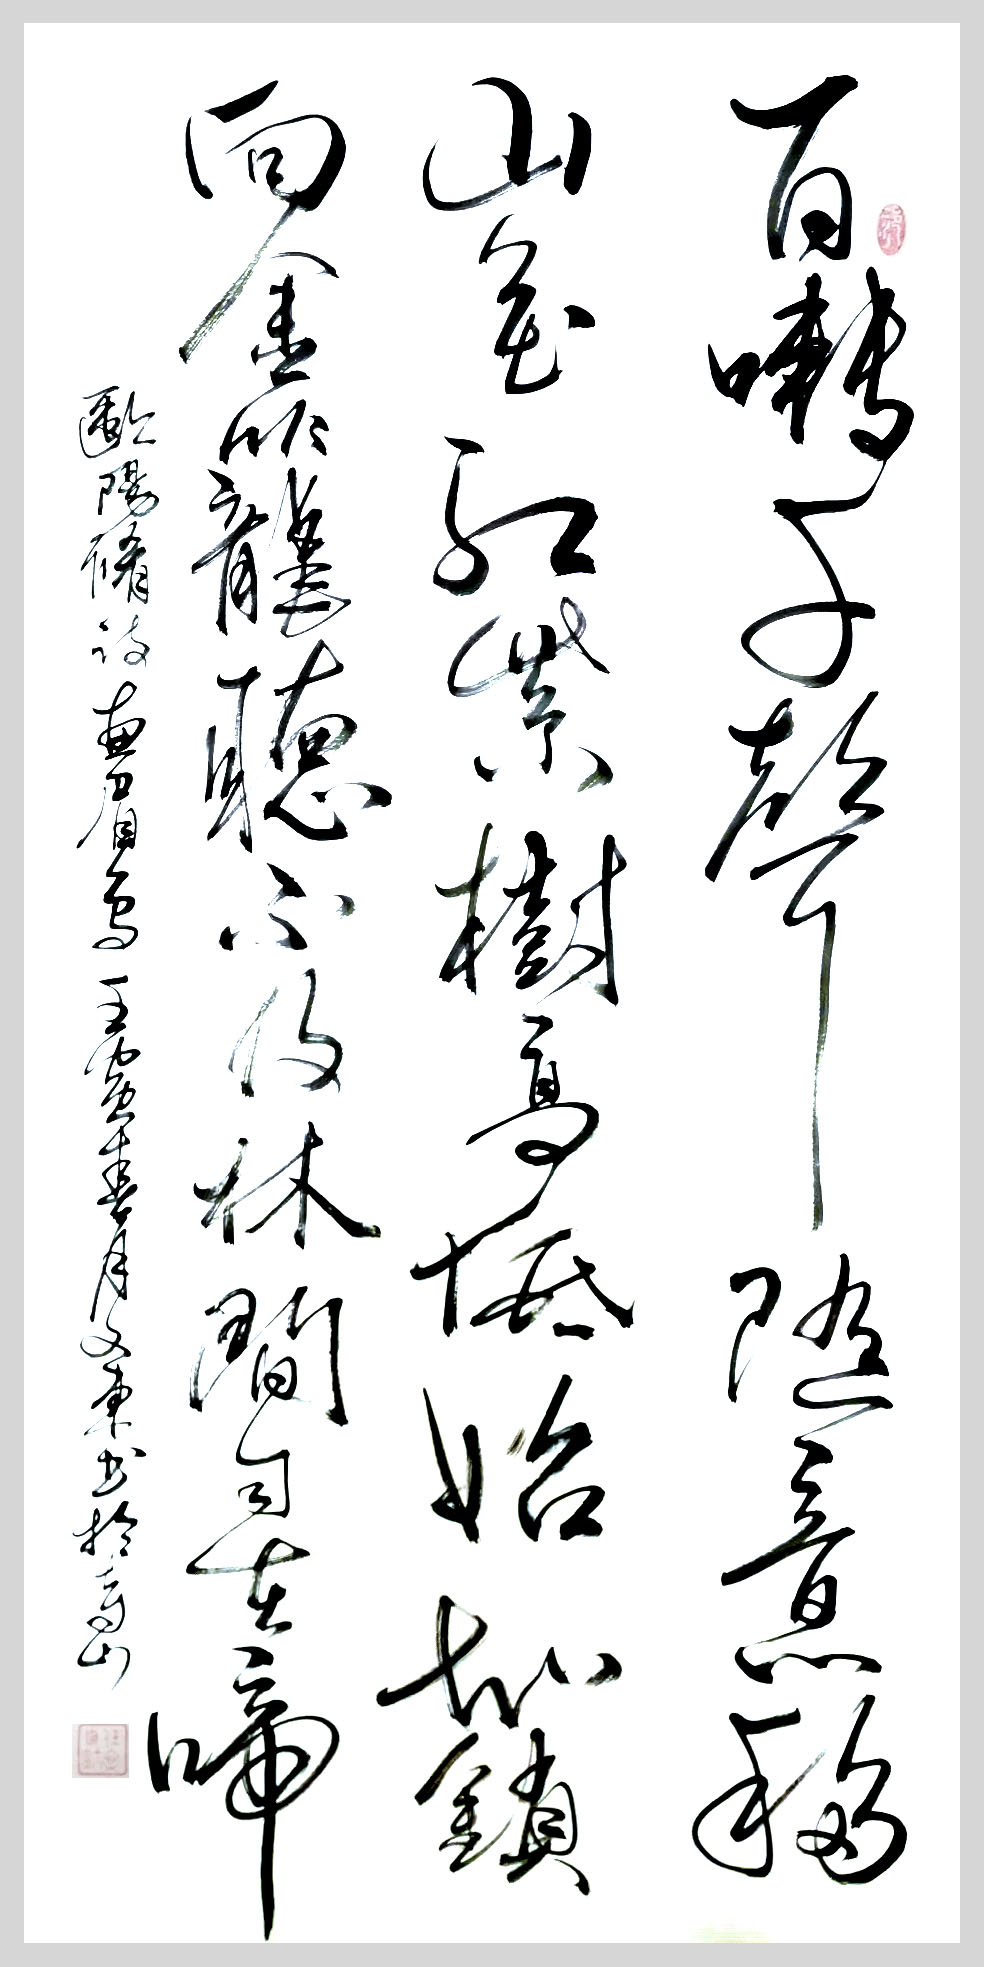 百囀千聲隨意移
山花紅紫樹高低始知鎖
向金籠聽不及林間自在啼
歐陽脩詩畫眉鳥 壬寅春月文東书於山